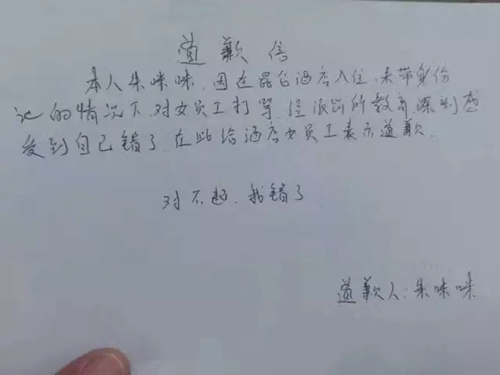 道歉信
本人朱咪咪,因在昆仑酒店入住,未带身份
证的情况下,对女员工打骂,经派出所教育深刻感
受到自己错了,在此给酒店女员工表示道歉.
对不起.我错了
道歉人:朱咪咪